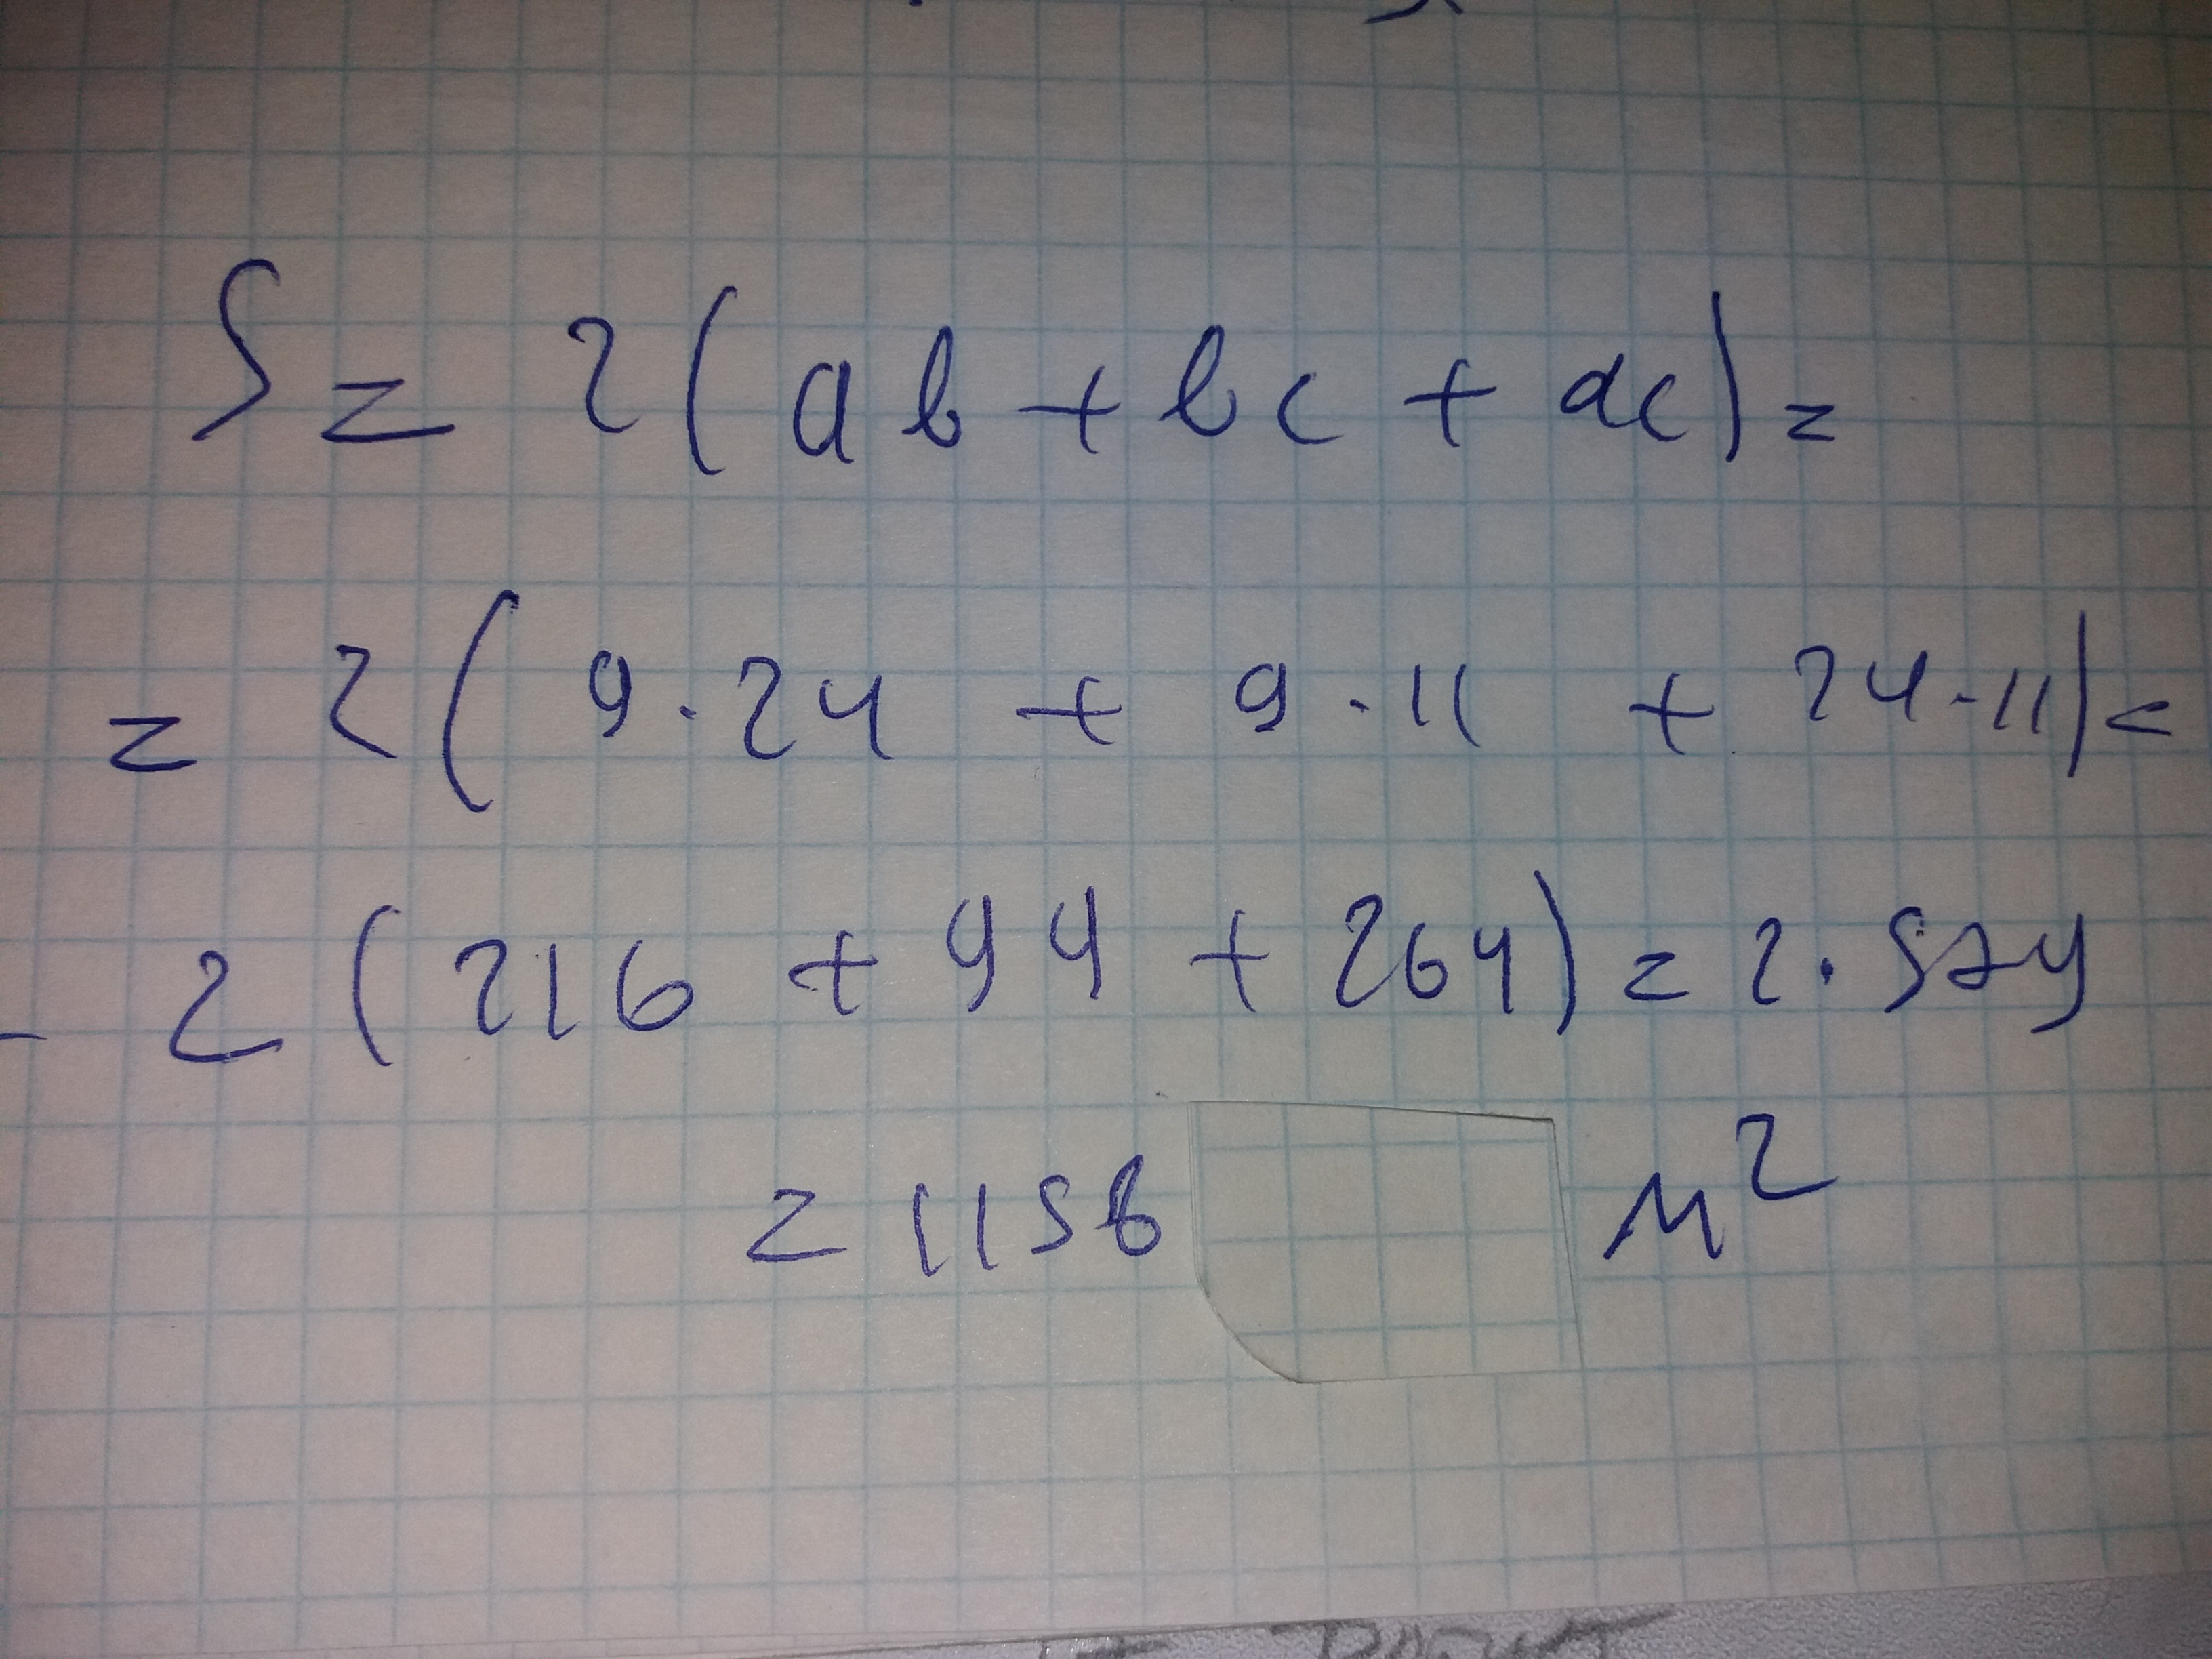 S = 2(ab + bc + ac) =
= 2(9·24 + 9·11 + 24·11) =
- 2(216 + 99 + 264) = 2·579
= 1158 м²